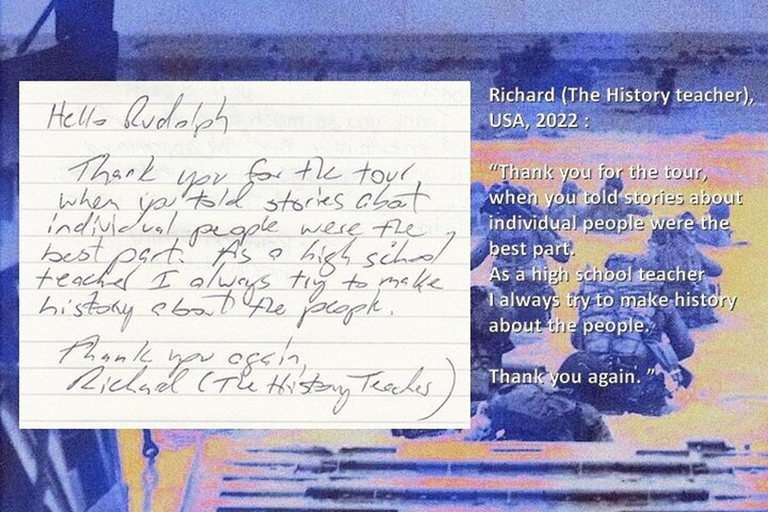 Hello Rudolph
Thank you for the tour,
when you told stories about
individual people were the
best part. As a high school
teacher I always try to make
history about the people.
Thank you again,
Richard (The History Teacher)
Richard (The History teacher),
USA, 2022 :
“Thank you for the tour,
when you told stories about
individual people were the
best part.
As a high school teacher
I always try to make history
about the people.
Thank you again. ”